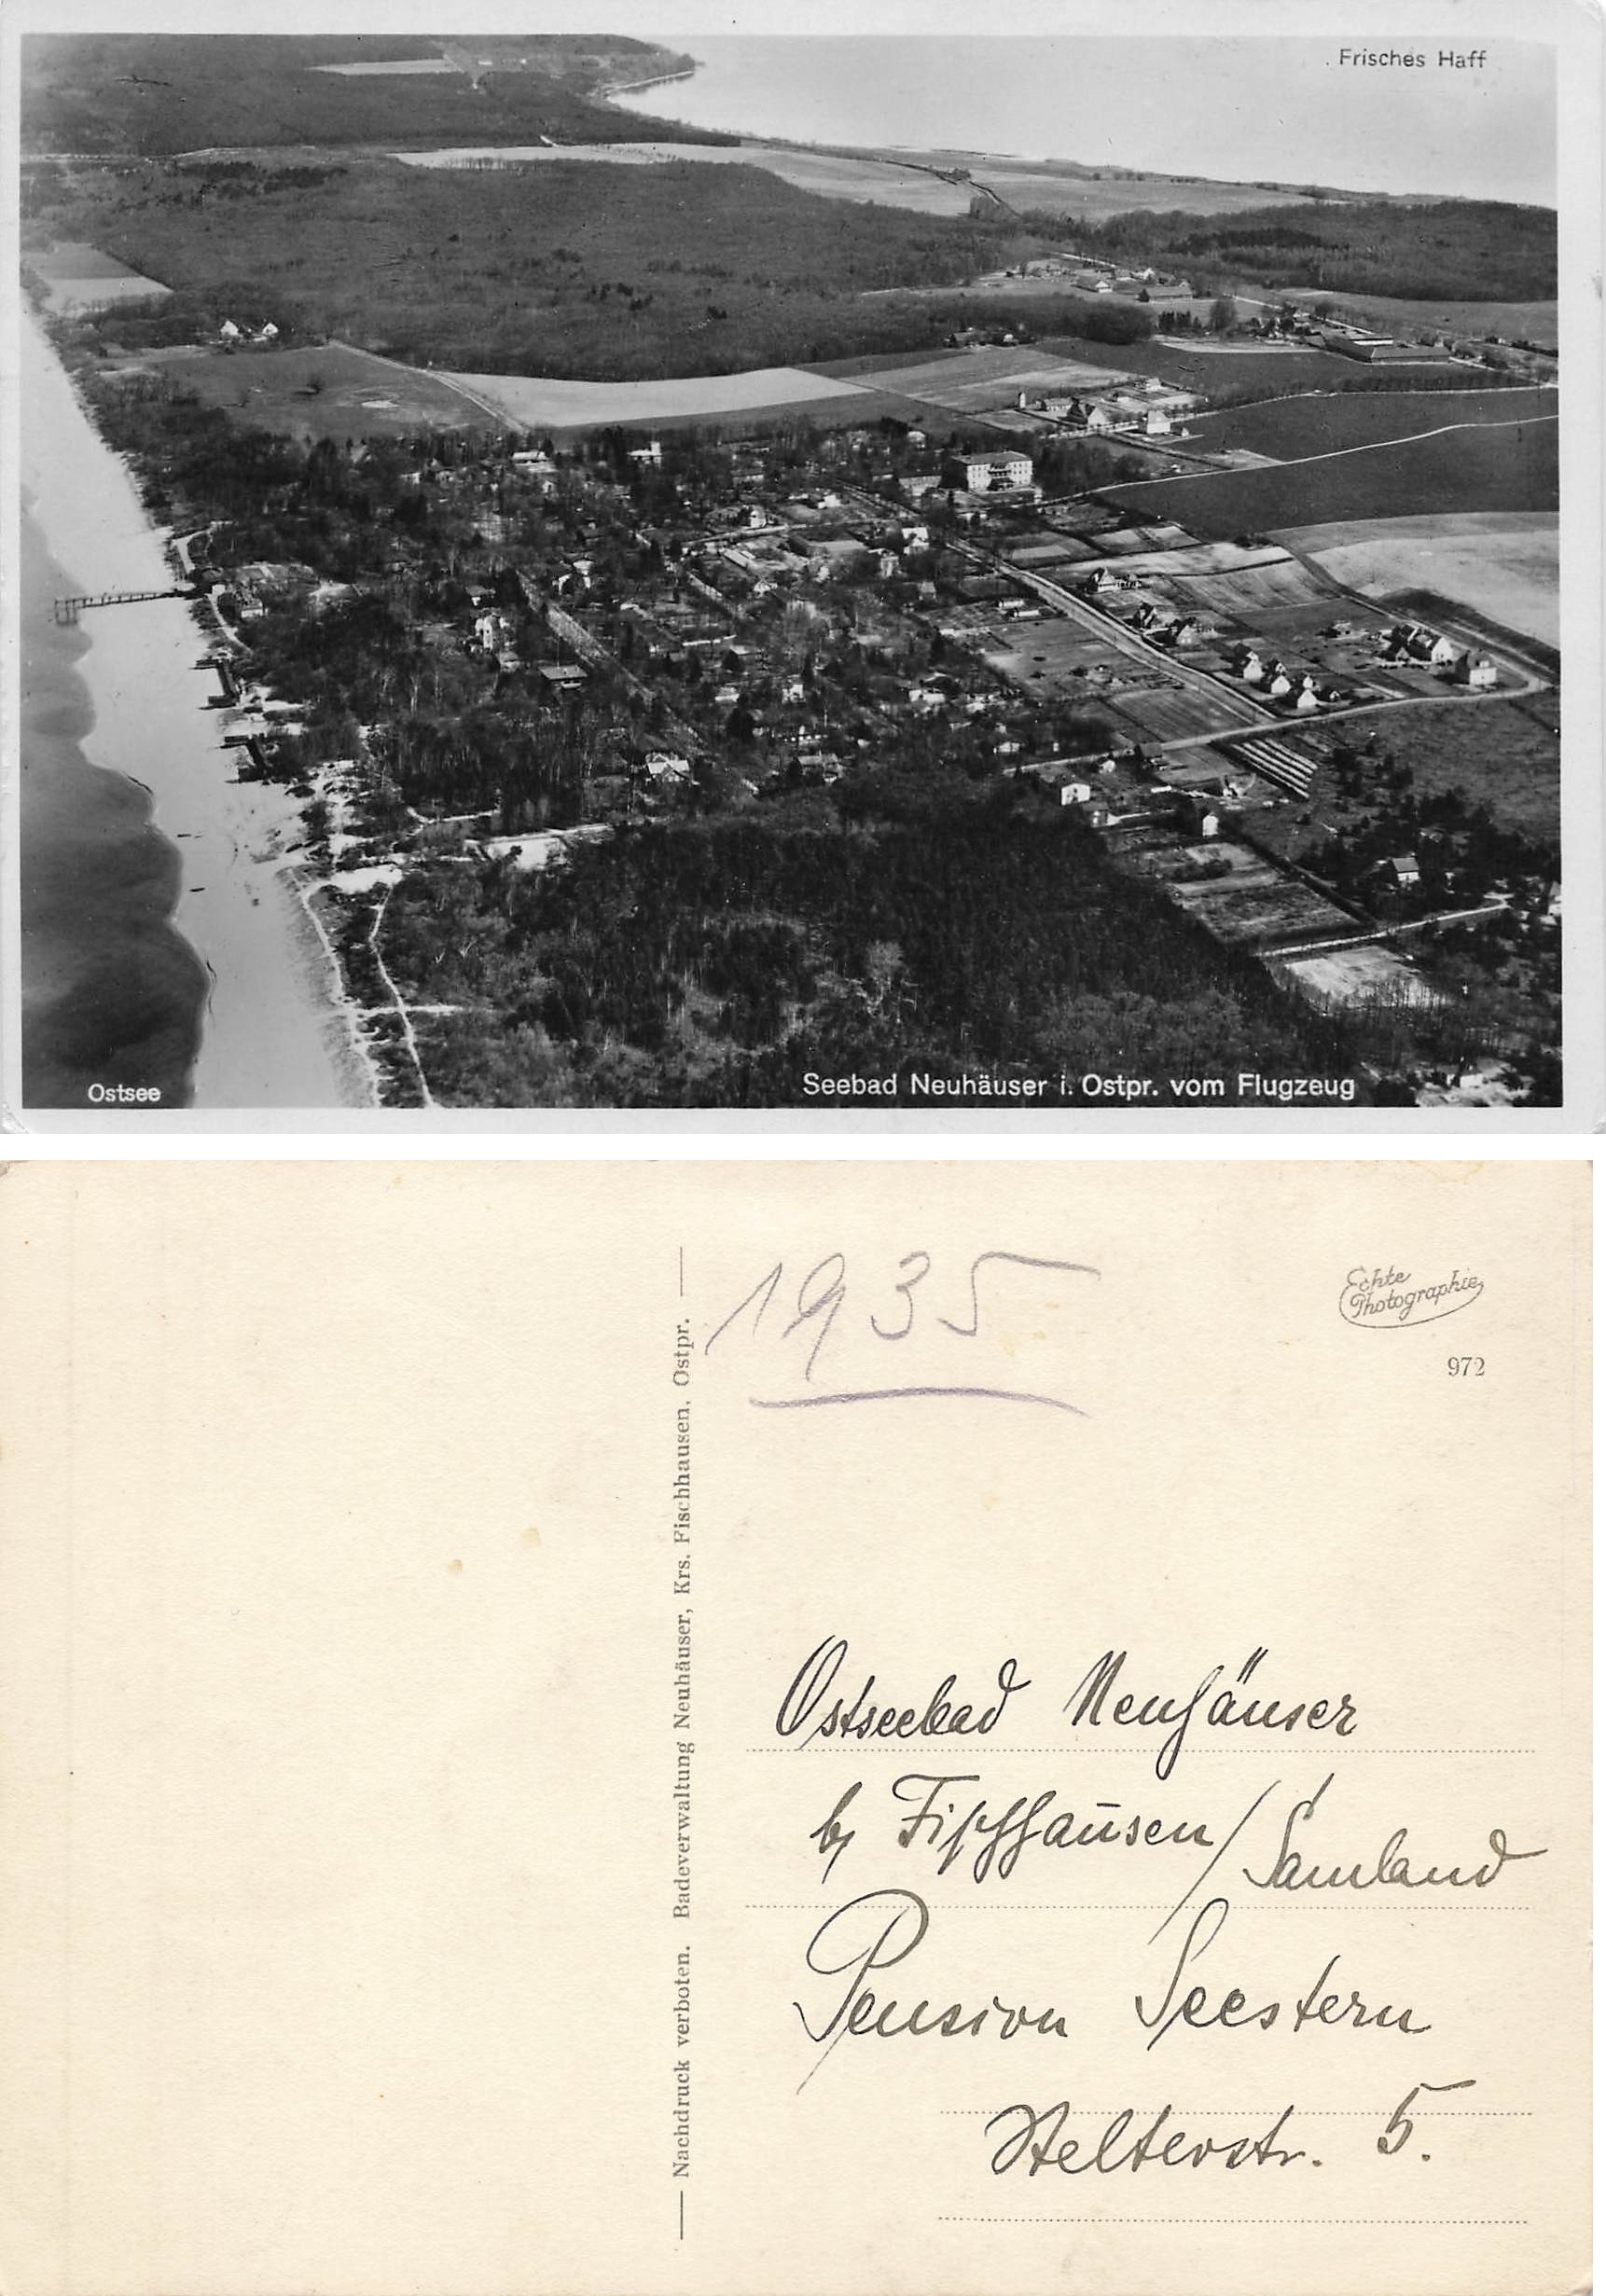 Frisches Haff
Ostsee
Seebad Neuhäuser i. Ostpr. vom Flugzeug
Nachdruck verboten. Badeverwaltung Neuhäuser, Krs. Fischhausen, Ostpr.
1935
Echte
Photographie
972
Ostseebad Neuhäuser
b/ Fischhausen/Samland
Pension Seestern
5.